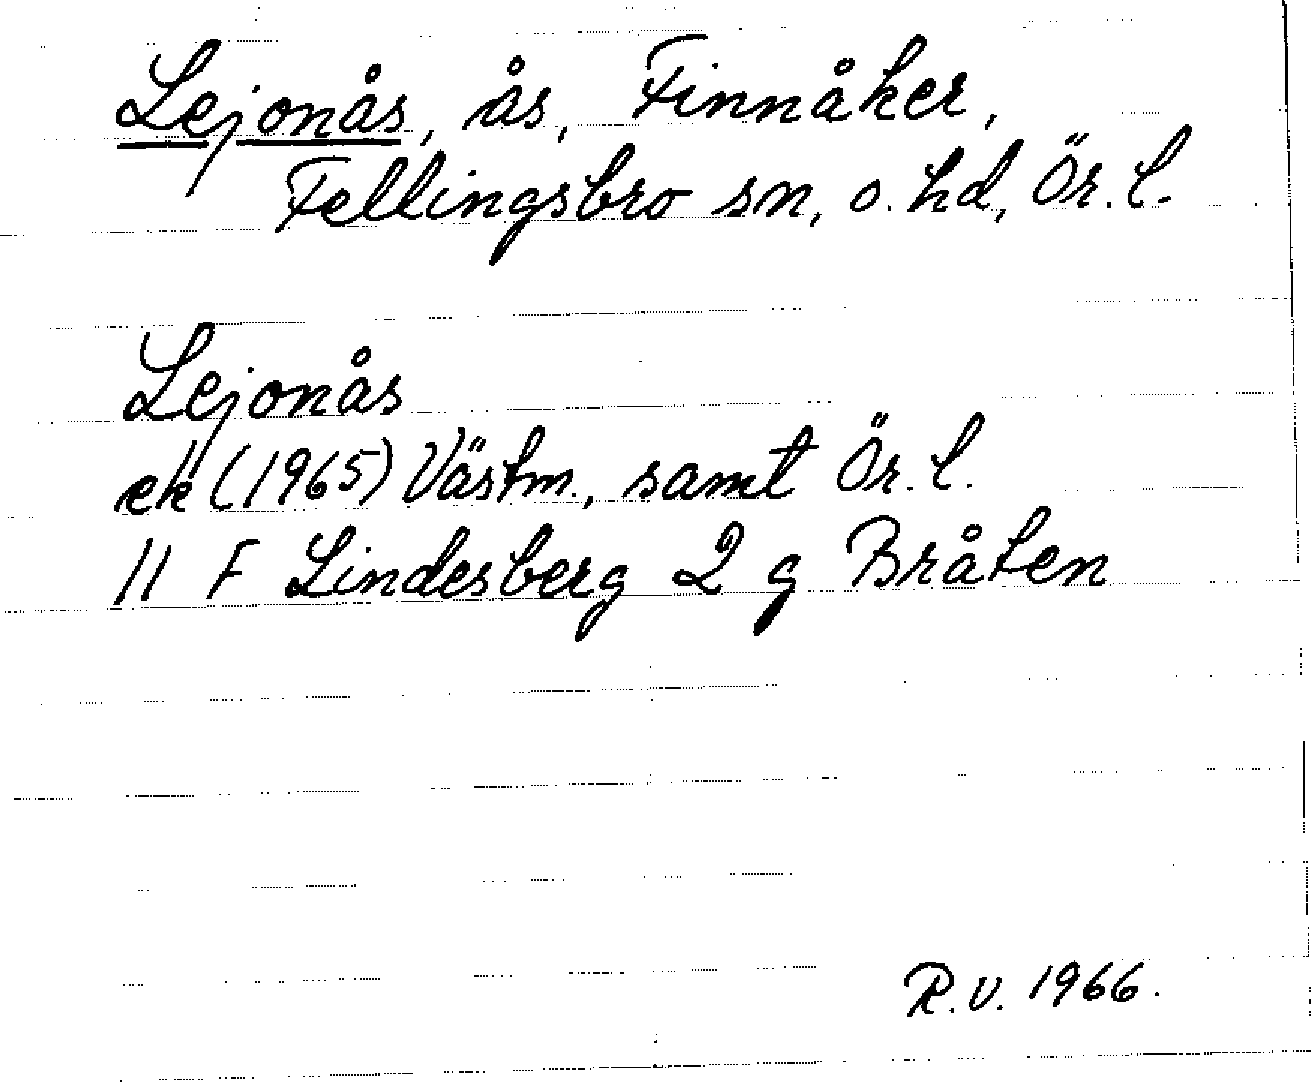 Lejonås, ås, Finnåker,
Fellingsbro sn, o. hd, Ör. l.
Lejonås
ek (1965) Västm., samt Ör. l.
11 F Lindesberg 2 g Bråten
R.V. 1966.